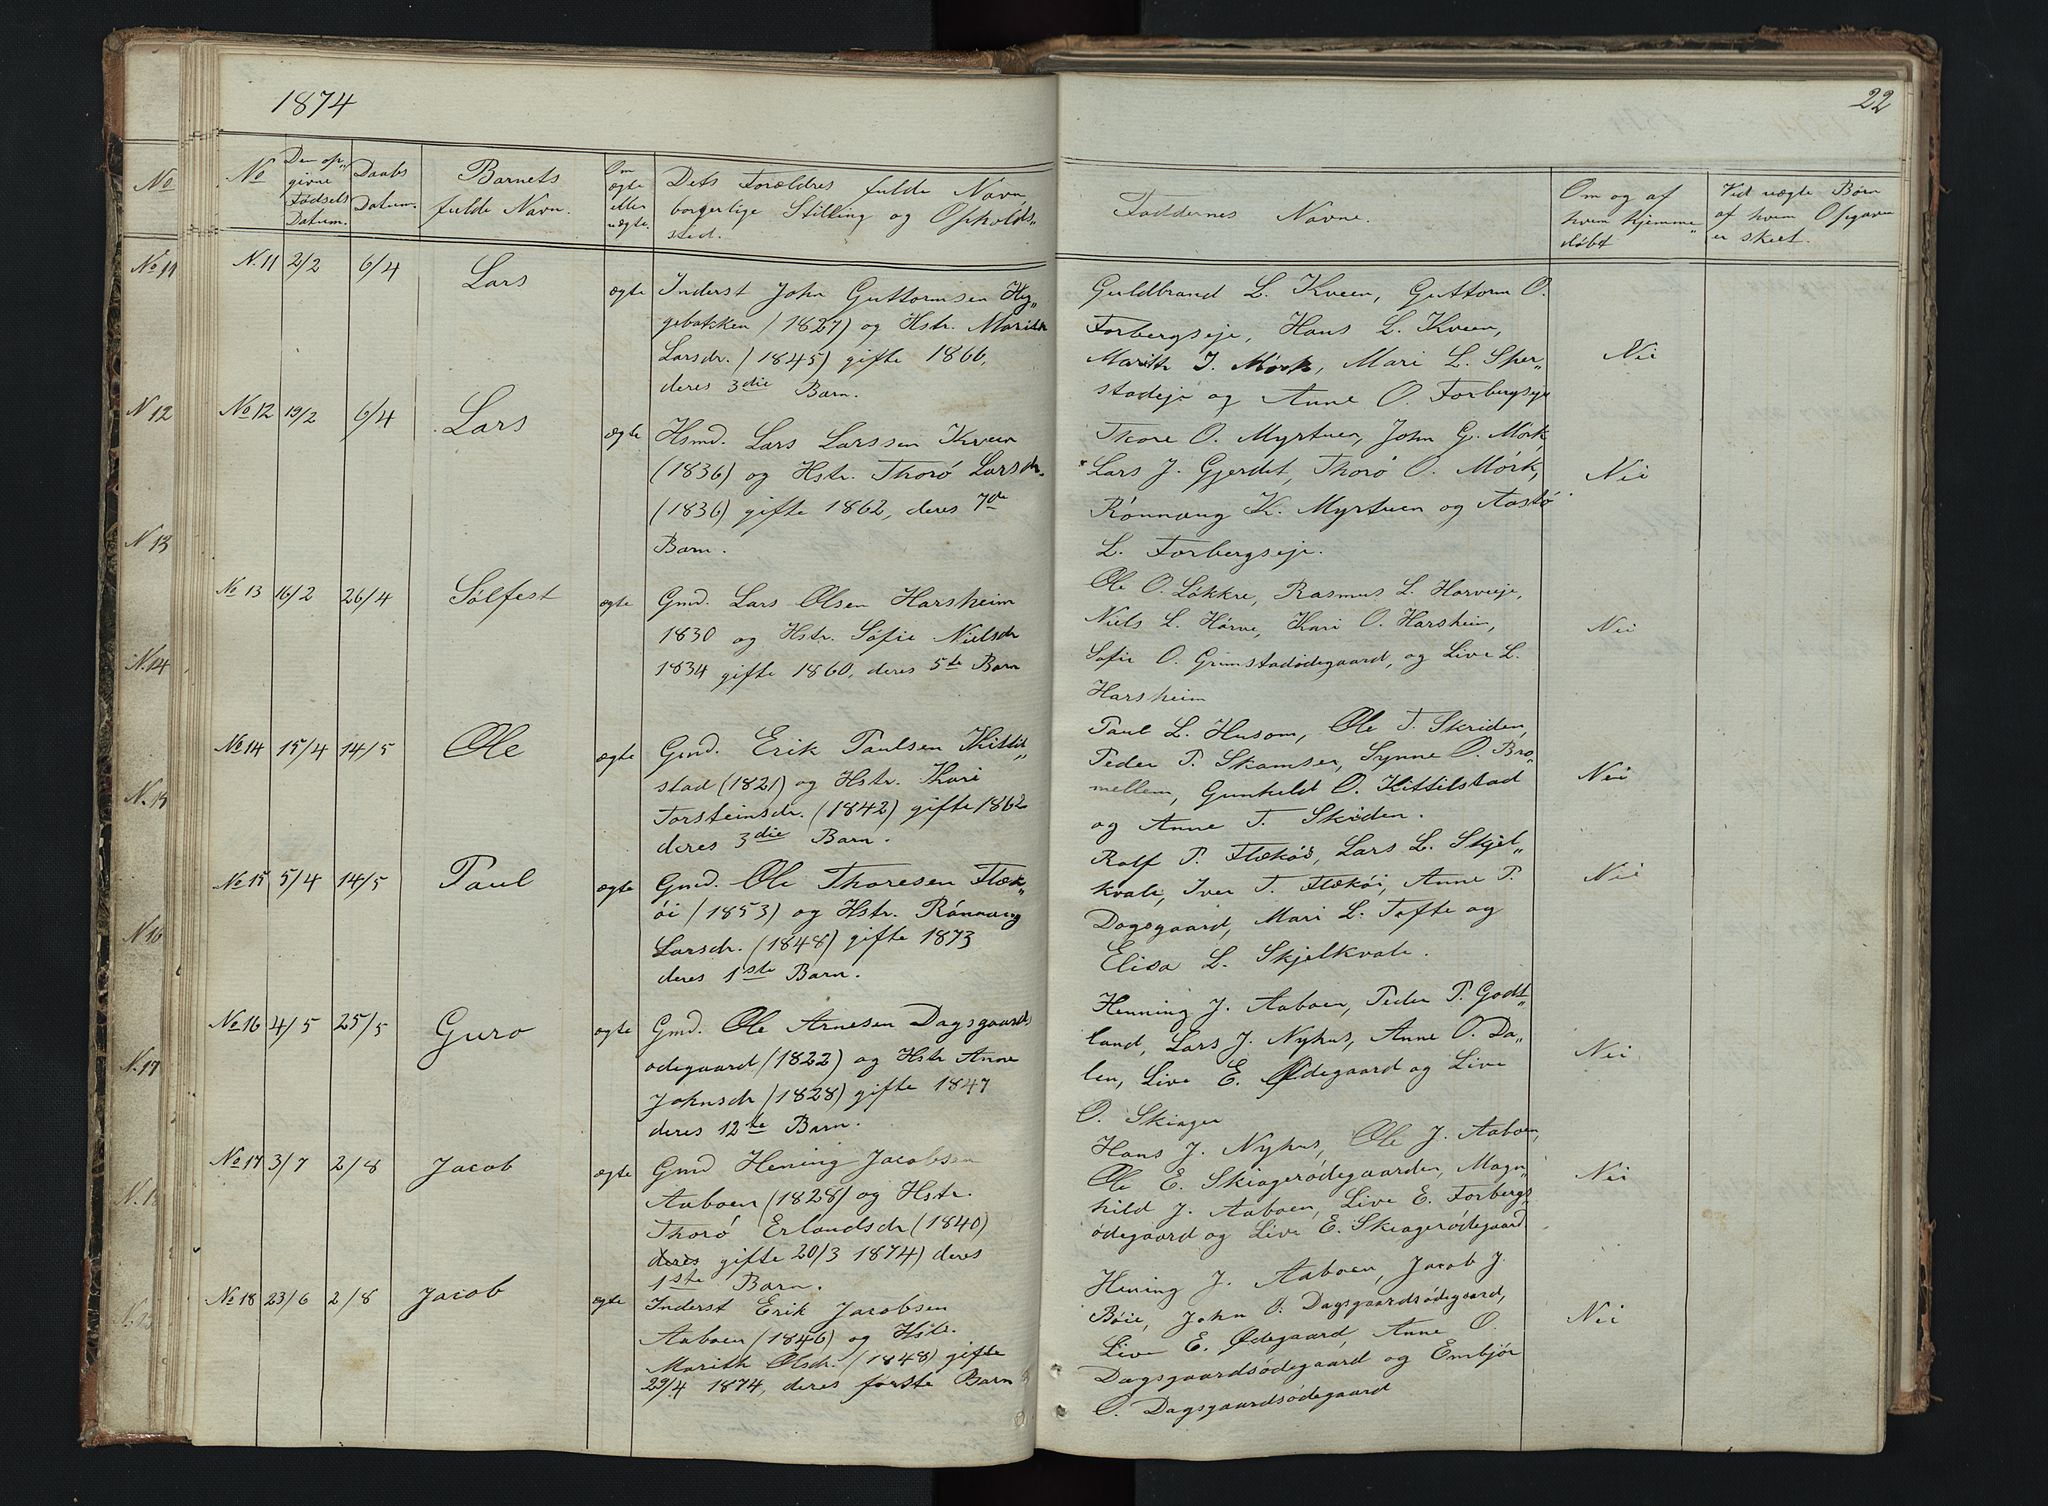 1874
22
No
No
Den op-
givne
Fødsels
Datum.
Daabs
Datum.
Barnets
fulde Navn.
Om
ægte
eller
uægte
Dets Forældres fulde Navn
borgerlige Stilling og Opholds-
sted.
Faddernes Navne.
Om og af
hvem hjemme-
døbt
Ved uægte Børn
af hvem Opgaven
er skeet.
No 11
N. 11 2/2 6/4 Lars ægte
Inderst John Guttormsen Hy-
gebakken (1827) og Hstr. Marith
Larsdr. (1845) gifte 1866,
deres 3die Barn.
Guldbrand L. Kveen, Guttorm O.
Forbergseje, Hans L. Kveen,
Marith J. Mørk, Mari L. Sper-
stadeje og Anne O. Forbergseje
Nei
N 12
No 12 19/2 6/4 Lars ægte
Hsmd. Lars Larssen Kveen
(1836) og Hstr. Thorø Larsdr.
(1836) gifte 1862, deres 7de
Barn.
Thore O. Myrtuen, John G. Mørk,
Lars J. Gjerdet, Thorø O. Mørk,
Rønnaug K. Myrtuen og Aastø
L. Forbergseje.
Nei
N 13
No 13 16/2 26/4 Sølfest ægte
Gmd. Lars Olsen Harsheim
1830 og Hstr. Sofie Nielsdr
1834 gifte 1860, deres 5te Barn
Ole O. Løkkre, Rasmus L. Horveje,
Niels L. Hørve, Kari O. Harsheim,
Sofie O. Grimstadødegaard, og Live L.
Harsheim
Nei
N. 14
No 14 15/4 14/5 Ole ægte
Gmd. Erik Paulsen Kittil-
stad (1821) og Hstr. Kari
Torsteinsdr. (1842) gifte 1862
deres 3die Barn.
Paul L. Husom, Ole T. Skriden,
Peder P. Skamser, Synne O. Bro-
mellem, Gunhild O. Kittilstad
og Anne T. Skiden.
Nei
N. 15
No 15 5/4 14/5 Paul ægte
Gmd. Ole Thoresen Flæk-
øi (1853) og Hstr. Rønnaug
Larsdr. (1848) gifte 1873
deres 1ste Barn.
Rolf P. Flækøi, Lars L. Skjel-
kvale, Iver T. Flækøi, Anne P.
Dagsgaard, Mari L. Tofte og
Elisa L. Skjelkvale.
Nei
N 16
No 16 4/5 25/5 Guro ægte
Gmd. Ole Arnesen Dagsgaards
ødegaard (1822) og Hstr Anne
Johnsdr (1828) gifte 1847
deres 12te Barn.
Henning J. Aaboen, Peder P. Godt-
land, Lars J. Nyhus, Anne O. Da-
len, Live E. Ødegaard og Live
O. Skiager
Nei
N. 17
No 17 3/7 2/8 Jacob ægte
Gmd Hening Jacobsen
Aaboen (1828) og Hstr.
Thorø Erlandsdr (1840)
deres gifte 20/3 1874) deres
1ste Barn.
Hans J. Nyhus, Ole J. Aaboen,
Ole E. Skiagerødegaarden, Magn-
hild J. Aaboen, Live E. Forbergs
ødegaard og Live E. Skiagerødegaard
Nei
N. 18
No 18 23/6 2/8 Jacob ægte
Inderst Erik Jacobsen
Aaboen (1846) og Hstr.
Marith Olsdr. (1848) gifte
29/4 1874, deres første Barn
Hening J. Aaboen, Jacob J.
Bøie, John O. Dagsgaardsødegaard,
Live E. Ødegaard, Anne O.
Dagsgaardsødegaard og Embjør
O. Dagsgaardsødegaard
Nei